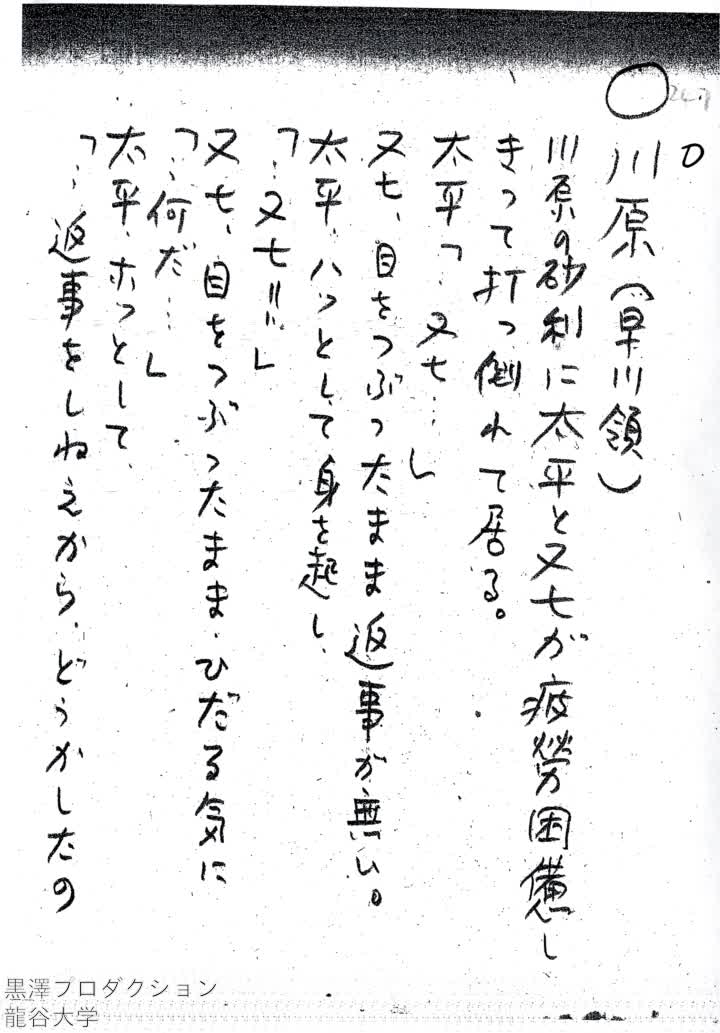 ○川原(早川領)
川原の砂利に太平と又七が疲労困憊し
きって打っ倒れて居る。
太平「‥又七‥‥」
又七、目をつぶったまま返事が無い。
太平、ハッとして身を起し、
「‥又七!!‥」
又七、目をつぶったまま、ひだる気に
「‥何だ‥‥」
太平、ホッとして、
「‥返事をしねえから、どうかしたの
黒澤プロダクション
龍谷大学